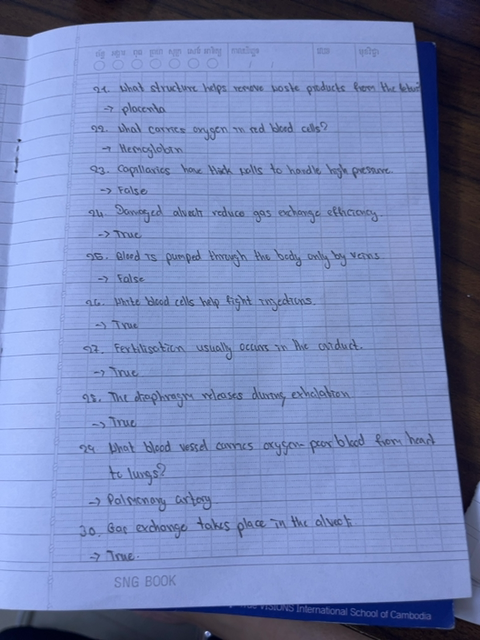 21. What structure helps remove waste products from the fetus?
-> placenta
22. What carries oxygen in red blood cells?
-> Hemoglobin
23. Capillaries have thick walls to handle high pressure.
-> False
24. Damaged alveoli reduce gas exchange efficiency.
-> True
25. Blood is pumped through the body only by veins
-> False
26. White blood cells help fight injections.
-> True
27. Fertilisation usually occurs in the oviduct.
-> True
28. The diaphragm releases during exhalation
-> True
29 What blood vessel carries oxygen-poor blood from heart
to lungs?
-> Pulmonary artery
30. Gas exchange takes place in the alveoli
-> True.
SNG BOOK
VISIONS International School of Cambodia